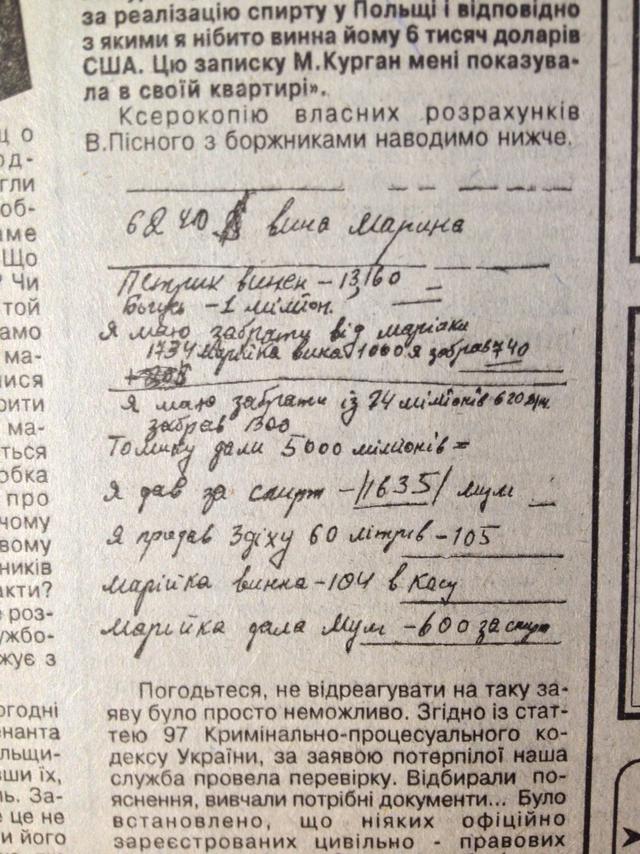 за реалізацію спирту у Польщі і відповідно
з якими я нібито винна йому 6 тисяч доларів
США. Цю записку М.Курган мені показува-
ла в своїй квартирі».
Ксерокопію власних розрахунків
В.Пісного з боржниками наводимо нижче.
6240 $ вина Марина
Петрик винен - 13,160
- 1 мілімон.
Я маю забрати від марійки
1734 марійка вина 1000 я забрав 740
Я маю забрати із 74 мілімонів 620
забрав 1300
Томику дали 5000 мілімонів =
Я дав за спирт - /1635/ мум
Я продав Здіху 60 літрив - 105
Марійка винна - 104 в касу
Марійка дала Мум - 600 за спирт
Погодьтеся, не відреагувати на таку за-
яву було просто неможливо. Згідно із стат-
тею 97 Кримінально-процесуального ко-
дексу України, за заявою потерпілої наша
служба провела перевірку. Відбирали по-
яснення, вивчали потрібні документи... Було
встановлено, що ніяких офіційно
зареєстрованих цивільно - правових
що
од-
гли
об-
аме
Що
? Чи
той
амо
ма-
лися
рити
ма-
ться
обка
про
чому
вому
ників
акти?
роз-
ужбо-
жує з
огодні
енанта
льщи-
вши їх,
ль. За-
е це не
и його